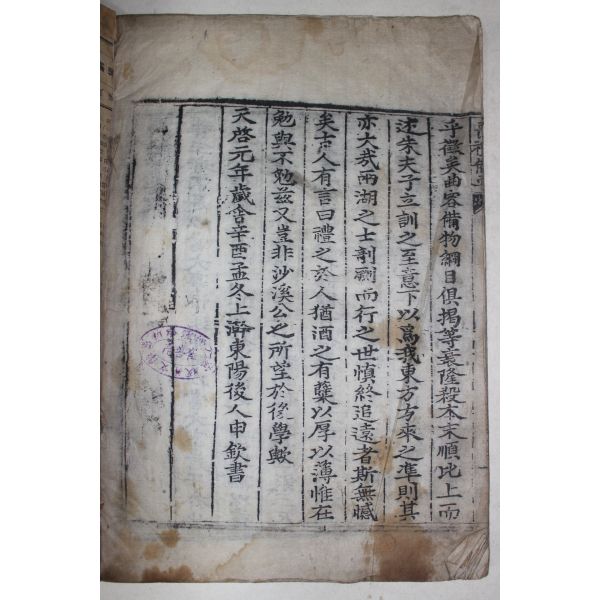 乎徵矣曲容備物綱目俱揭等衰隆殺本末順比上而
述朱夫子立訓之至意下以爲我東方方來之準則其
亦大哉兩湖之士剞劂而行之世愼終追遠者斯無憾
矣古人有言曰禮之於人猶酒之有蘖以厚以薄惟在
勉與不勉玆又豈非沙溪公之所望於後學歟
天啓元年歲舍辛酉孟冬上澣東陽後人申欽書